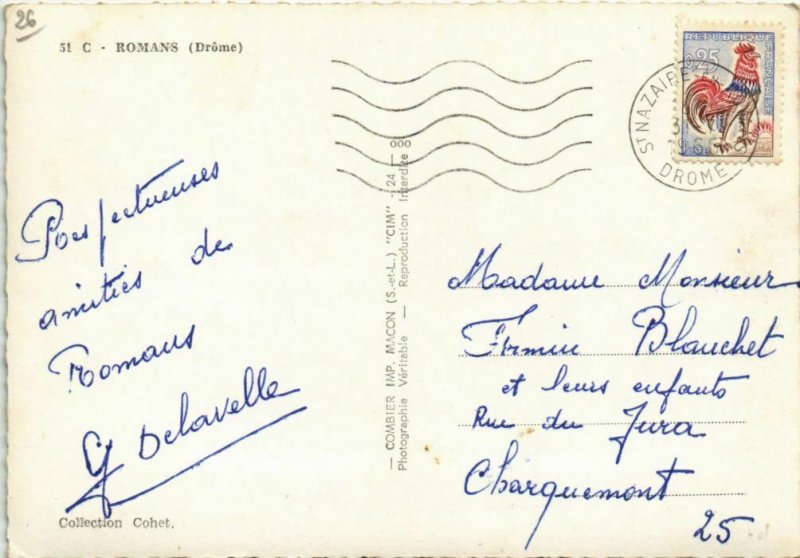 26
51 C - ROMANS (Drôme)
Respectueuses
amitiés de
Romans
G Delavelle
Collection Cohet.
— COMBIER IMP. MACON (S.-et-L.) "CIM" - 24 — 000
Photographie Véritable — Reproduction Interdite
REPUBLIQUE
FRANCAISE
0,25
ST NAZAIRE-EN-
DROME
Madame Monsieur
Firmin Blauchet
et leurs enfants
Rue du Jura
Charquemont
25